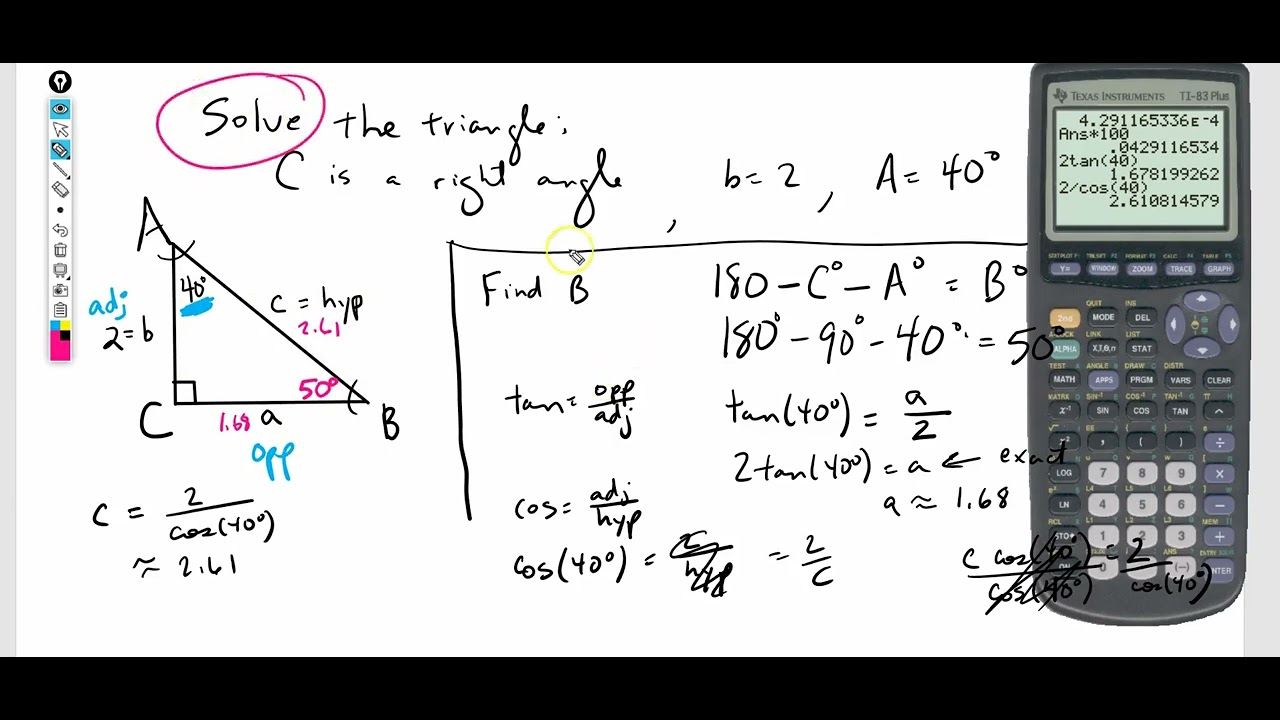 Solve the triangle:
C is a right angle, b=2, A=40°
A
40°
adj
2=b
c = hyp
2.61
50°
C
1.68 a
B
opp
c = 2/cos(40°)
≈ 2.61
Find B
180-C°-A° = B°
180°-90°-40° = 50°
tan = opp/adj
tan(40°) = a/2
2tan(40°) = a ← exact
a ≈ 1.68
cos = adj/hyp
cos(40°) = 2/hyp = 2/c
c cos(40°)/cos(40°) = 2/cos(40°)
TEXAS INSTRUMENTS TI-83 Plus
4.291165336E-4
Ans*100
.0429116534
2tan(40)
1.678199262
2/cos(40)
2.610814579
STAT PLOT F1 TBLSET F2 FORMAT F3 CALC F4 TABLE F5
Y= WINDOW ZOOM TRACE GRAPH
QUIT INS
2nd MODE DEL
A-LOCK LINK LIST
ALPHA X,T,θ,n STAT
TEST A ANGLE B DRAW C DISTR
MATH APPS PRGM VARS CLEAR
MATRX D SIN⁻¹ E COS⁻¹ F TAN⁻¹ G π H
x⁻¹ SIN COS TAN ^
x² , ( ) ÷
LOG 7 8 9 ×
LN 4 5 6 −
RCL
STO 1 2 3 +
ON 0 (−) ENTER